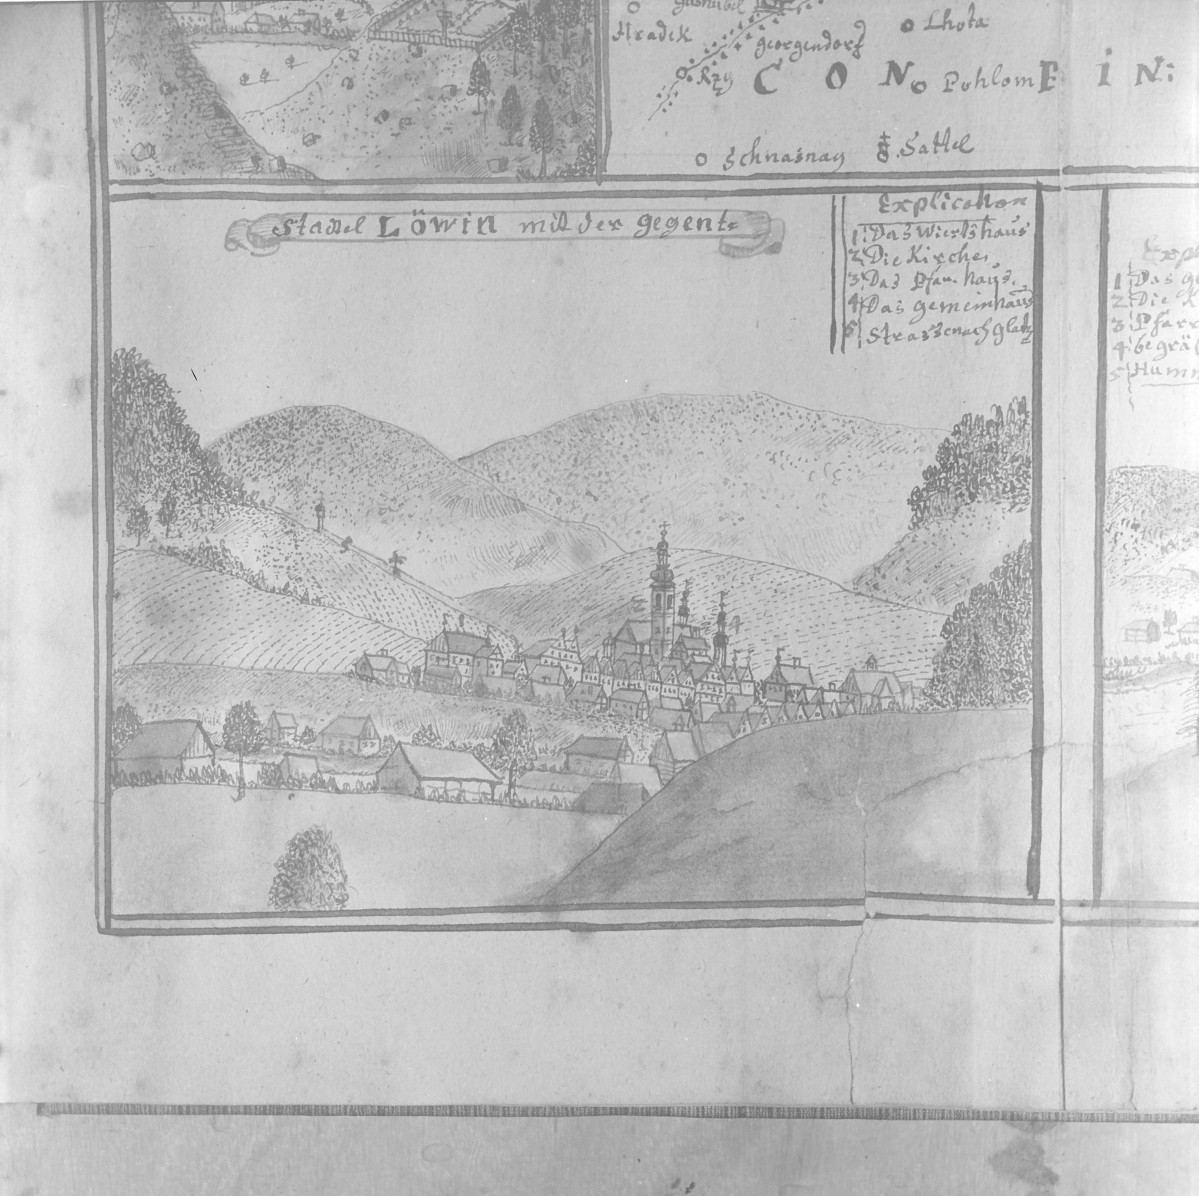 Hradek
georgendorf
Lhota
Rzy
C O N F I N:
Pohlom
Schnasnay
Sattel
Stadtel LÖWIN mit der gegent:
Explication
1: Das Wiertshaus
2: Die Kirche,
3: Das Pfarr haus.
4: Das gemeinhaus
5: Strassenach glatz
1: Das
2: Die
3: Pfarr
4: begrä
5: Humm
2
4